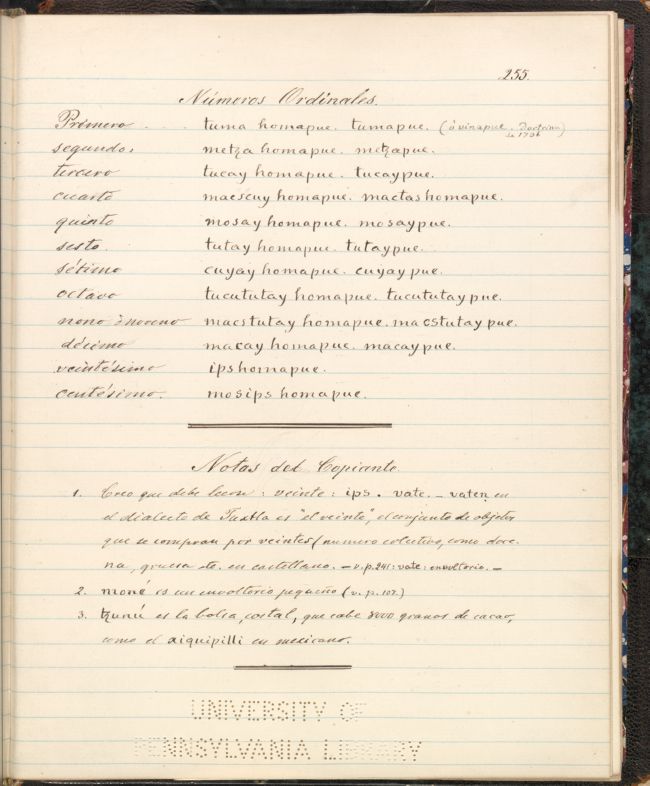 255.
Números Ordinales.
Primero . . tuma homapue. tumapue. (ó vinapue. Doctrina
de 1736)
segundo. metza homapue. metzapue.
tercero tucay homapue. tucaypue.
cuarto macscuy homapue. mactashomapue.
quinto mosay homapue. mosaypue.
sesto. tutay homapue. tutaypue.
sétimo cuyay homapue. cuyaypue.
octavo tucututay homapue. tucututaypue.
nono ó noveno macstutay homapue. macstutaypue.
décimo macay homapue. macaypue.
veintésimo ipshomapue.
centésimo. mosips homapue.
Notas del Copiante.
1. Creo que debe leerse: veinte: ips. vate. – vaten en
el dialecto de Tuxtla es "el veinte", el conjunto de objetos
que se compran por veintes (numero colectivo, como doce-
na, gruesa etc. en castellano. – v. p. 241: vate: envoltorio. –
2. moné es un envoltorio pequeño (v. p. 107.)
3. tzunú es la bolsa, costal, que cabe 8000 granos de cacao,
como el xiquipilli en mexicano.
UNIVERSITY OF
PENNSYLVANIA LIBRARY